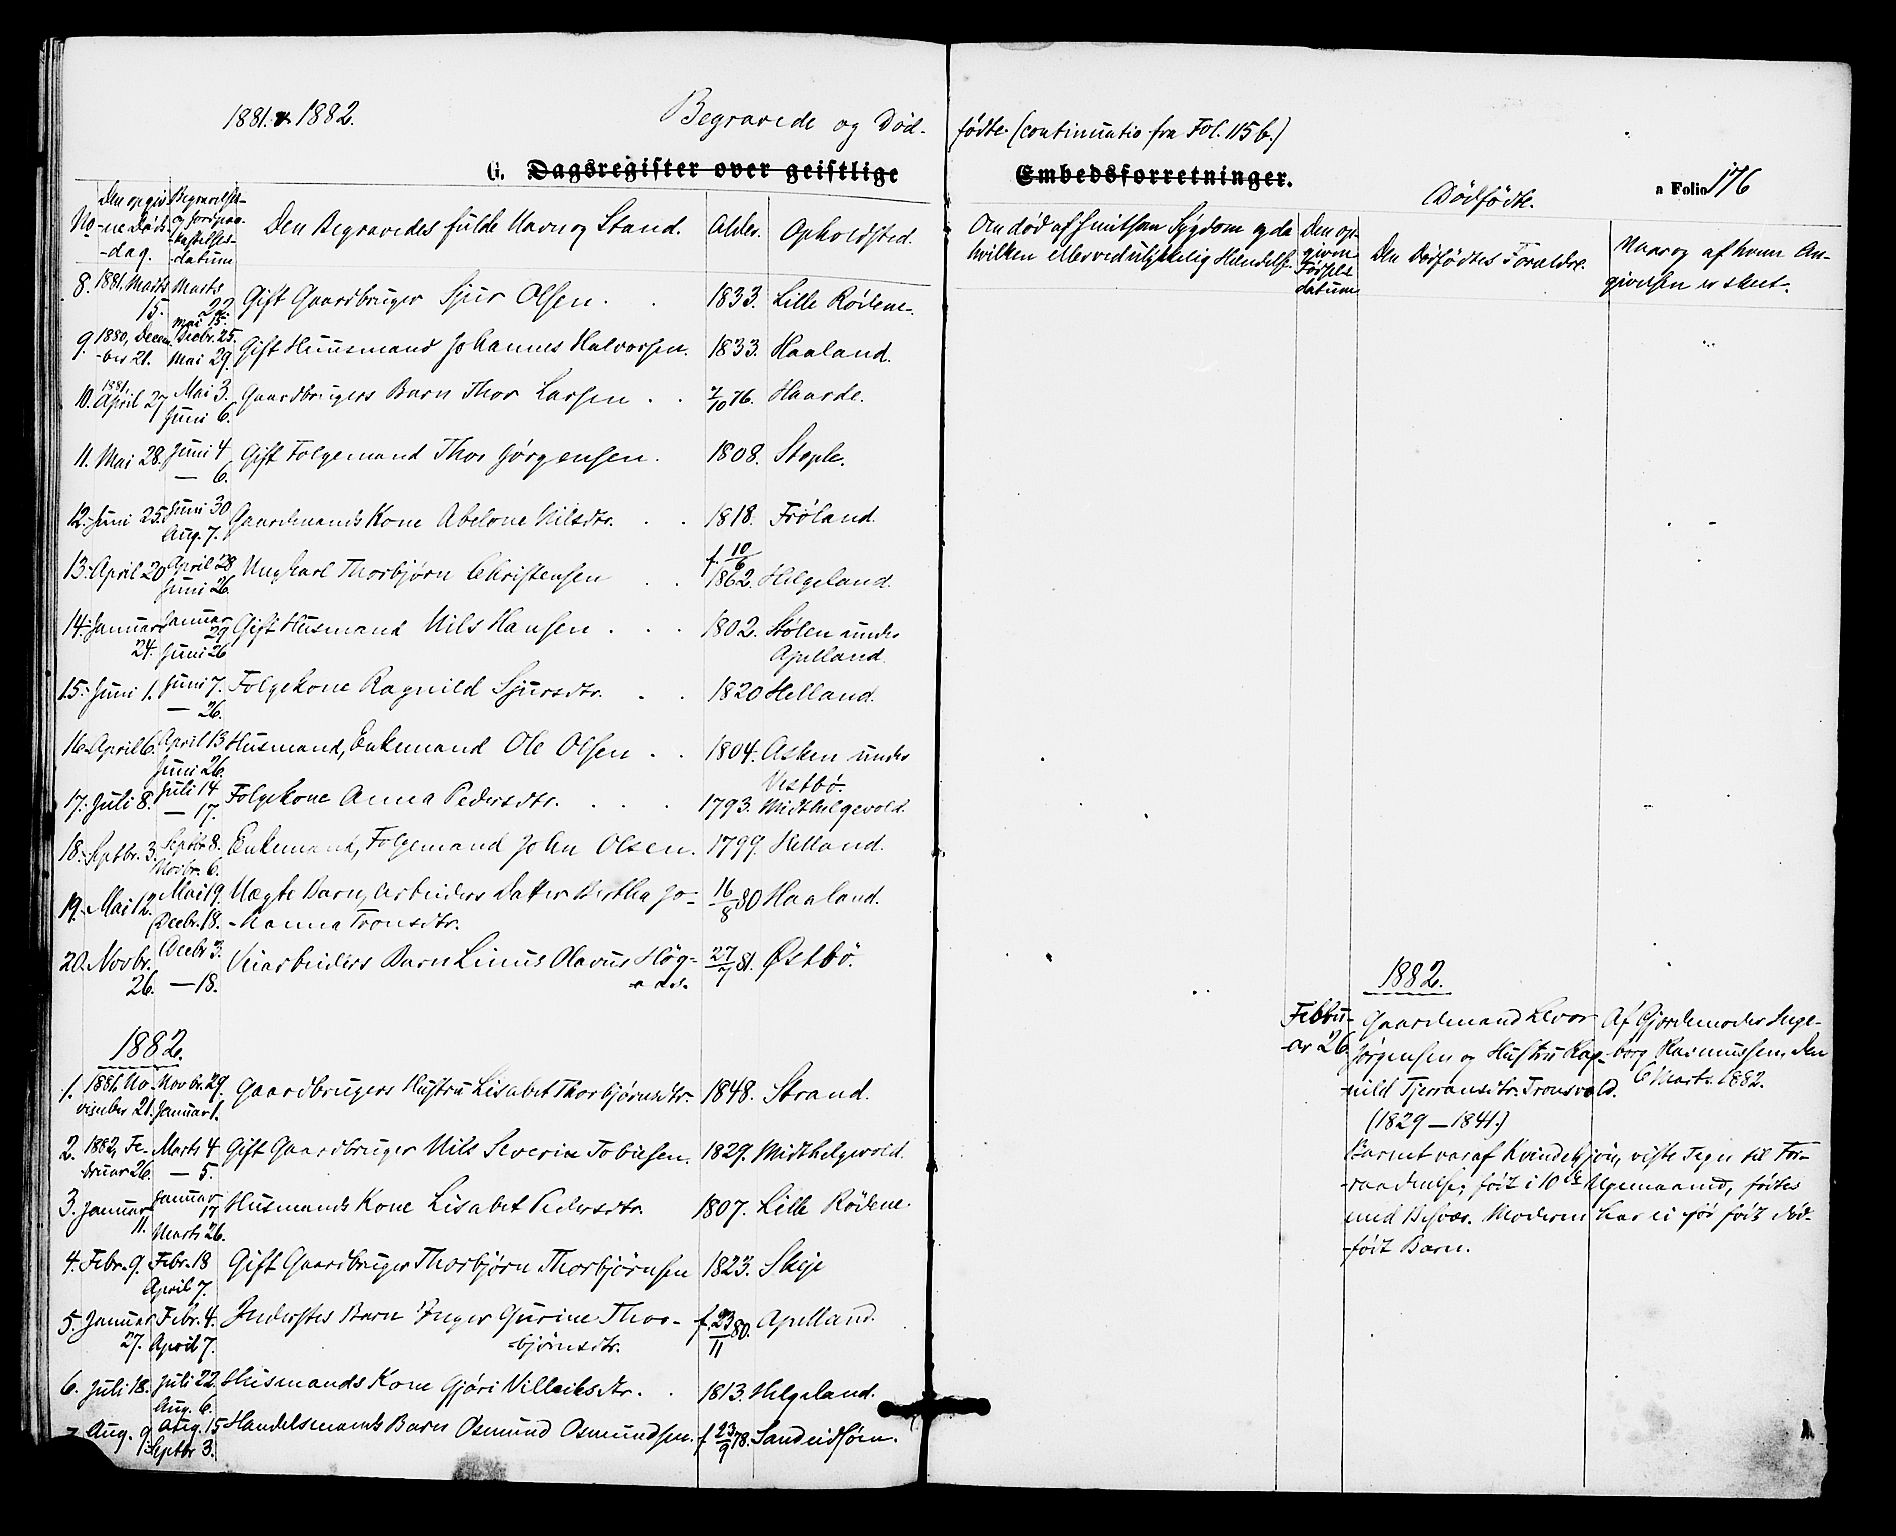 1881 & 1882. Begravede og Død-
fødte. (continuatio fra Fol. 115 b.)
G. Dagsregister over geistlige Embedsforretninger.
a Folio 176
Dødfødte.
No Den opgiv-ne Døds-dag. Begravelses- og Jordpaa-kastelses-datum Den Begravedes fulde Navn og Stand. Alder. Opholdsted.
Om død af smitsom Sygdom og da hvilken eller ved ulykkelig Hændelse. Den op-given Fødsels datum Den Dødfødtes Forældre. Naar og af hvem An-givelsen er skeet.
8. 1881. Marts 15. Marts 22. Mai 15. Gift Gaardbruger Sjur Olsen. 1833. Lille Rödene.
9. 1880, Decem-ber 21. Decbr. 25. Mai 29. Gift Huusmand Johannes Halvorsen. 1833. Haaland.
10. 1881. April 27 Mai 3. Juni 6. Gaardbrugers Barn Thor Larsen . . 2/10 76. Haarde.
11. Mai 28. Juni 4 — 6. Gift Folgemand Thor Jörgensen. 1808. Stople.
12. Juni 25. Juni 30 Aug. 7. Gaardmands Kone Abelone Nilsdtr. . . 1818. Fröland.
13. April 20 April 28 Juni 26. Ungkarl Thorbjørn Christensen . . f. 10/6 1862. Helgeland.
14. Januar 24. Januar 29 Juni 26 Gift Husmand Nils Hansen . . . 1802. Stølen under
Apelland.
15. Juni 1. Juni 7. — 26. Folgekone Ragnild Sjursdtr. . . 1820 Helland.
16. April 6. April 13 Juni 26. Husmand, Enkemand Ole Olsen . . 1804. Asken under
Vestbö.
17. Juli 8. Juli 14 — 17. Folgekone Anna Pedersdtr. . . . 1793. Midthelgevold.
18. Septbr. 3. Septbr 8. Novbr. 6. Enkemand, Folgemand John Olsen. 1799. Helland.
19. Mai 12. Mai 19. Decbr. 18. Uægte Barn, Arbeiders Datter Bertha Jo- 16/8 80 Haaland.
-hanna Tronsdtr.
20. Novbr. 26. Decbr 3. — 18. Veiarbeiders Barn Linus Olavus Hög- 27/7 81. Østbö.
1882.
1. 1881. No-vember 21. Novbr. 29. Januar 1. Gaardbrugers Hustru Lisabet Thorbjørnsdtr. 1848. Strand.
2. 1882, Fe-bruar 26. Marts 4 — 5. Gift Gaardbruger Nils Severin Tobiesen. 1829. Midthelgevold.
3. Januar 11. Januar 17 Marts 26. Husmands Kone Lisabet Pedersdtr. 1807. Lille Rödene.
4. Febr. 9. Febr. 18 April 7. Gift Gaardbruger Thorbjørn Thorbjørnsen 1823. Skeje
5. Januar 27. Febr. 4. April 7. Inderstes Barn Inger Gurine Thor- f. 23/11 80. Apelland.
-bjørnsdtr.
6. Juli 18. Juli 22. Aug. 6. Husmands Kone Gjöri Villeiksdtr. . 1813. Helgeland.
7. Aug. 9. Aug. 15 Septbr 3. Handelsmands Barn Osmund Osmundsen. f. 23/9 78. Sandeidsøen.
1882.
Febru-ar 26 Gaardmand Levor Af Gjordemoder Inge-
Jørgensen og Hustru Rag- -borg Rasmussen, den
-nild Tjerransdtr. Tronsvold. 6 Marts. 1882.
(1829 — 1841.)
Barnet var af Kvindekjön, viste Tegn til For-
-raadnelse, föit i 10de Ugemaand, fødtes
med Besvær. Moderen har ei før föit död-
-föit Barn.